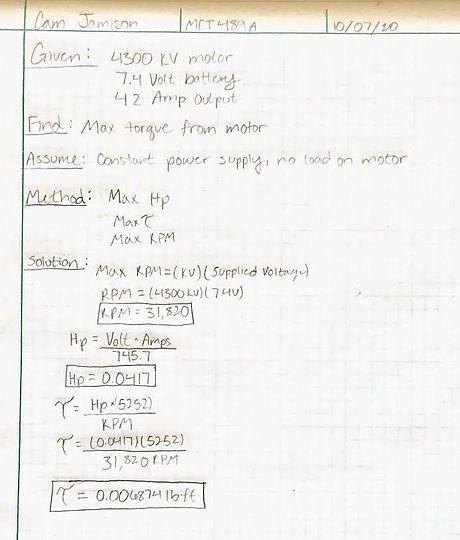 Cam Jamison MFT 489A 10/07/20
Given: 4300 KV motor
7.4 Volt battery
4.2 Amp Output
Find: Max torque from motor
Assume: Constant power supply, no load on motor
Method: Max Hp
Max τ
Max RPM
Solution:
Max RPM = (KV)(Supplied Voltage)
RPM = (4300 KV)(7.4V)
RPM = 31,820
Hp = Volt * Amps
745.7
Hp = 0.0417
τ = Hp * 5252)
RPM
τ = (0.0417)(5252)
31,820 RPM
τ = 0.006874 lb·ft